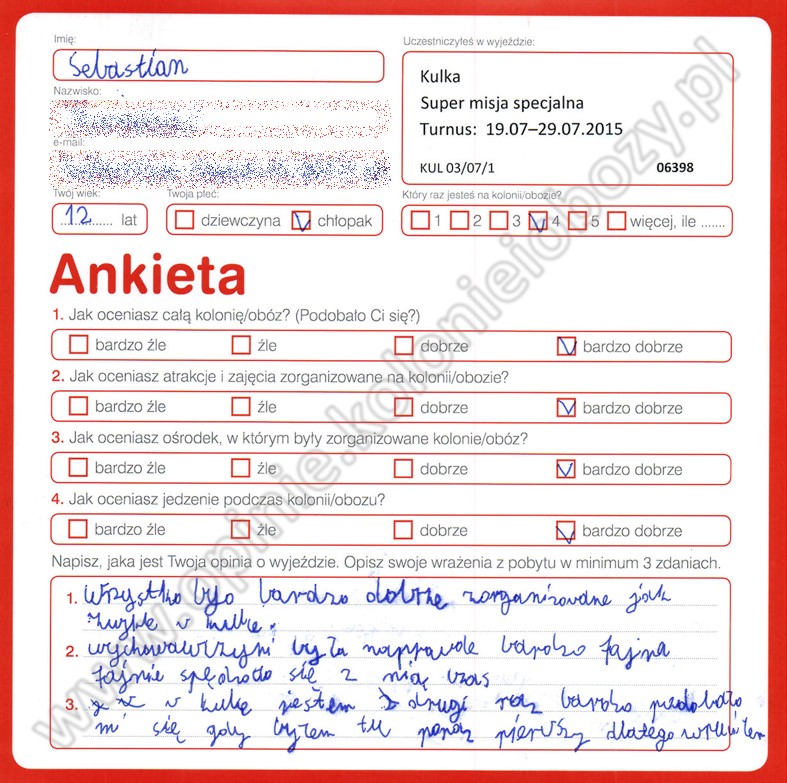 Imię:
Sebastian
Uczestniczyłeś w wyjeździe:
Kulka
Super misja specjalna
Turnus: 19.07–29.07.2015
KUL 03/07/1 06398
Nazwisko:
e-mail:
Twój wiek:
12 lat
Twoja płeć:
dziewczyna chłopak
Który raz jesteś na kolonii/obozie?
1 2 3 4 5 więcej, ile .......
Ankieta
1. Jak oceniasz całą kolonię/obóz? (Podobało Ci się?)
bardzo źle źle dobrze bardzo dobrze
2. Jak oceniasz atrakcje i zajęcia zorganizowane na kolonii/obozie?
bardzo źle źle dobrze bardzo dobrze
3. Jak oceniasz ośrodek, w którym były zorganizowane kolonie/obóz?
bardzo źle źle dobrze bardzo dobrze
4. Jak oceniasz jedzenie podczas kolonii/obozu?
bardzo źle źle dobrze bardzo dobrze
Napisz, jaka jest Twoja opinia o wyjeździe. Opisz swoje wrażenia z pobytu w minimum 3 zdaniach.
1. Wszystko było bardzo dobrze zorganizowane jak
w kulce.
2. wychowawczyni była naprawde bardzo fajna
fajnie spędzało się z nią czas
3. w kulce jestem drugi raz bardzo podobało
mi się gdy byłem tu poraz pierwszy dlatego wróciłem
www.opinie.kolonieiobozy.pl